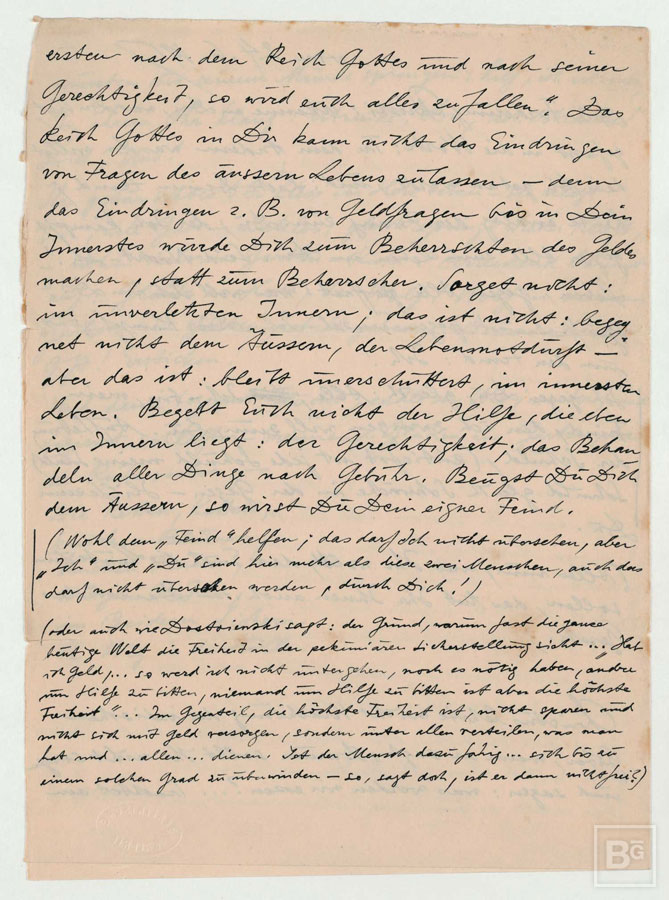 ersten nach dem Reich Gottes und nach seiner
Gerechtigkeit, so wird euch alles zufallen". Das
Reich Gottes in Dir kann nicht das Eindringen
von Fragen des äussern Lebens zulassen – denn
das Eindringen z. B. von Geldfragen bis in Dein
Innerstes würde Dich zum Beherrschten des Geldes
machen, statt zum Beherrscher. Sorget nicht:
im unverletzten Innern; das ist nicht: begeg
net nicht dem Äussern, der Lebensnotdurft –
aber das ist: bleibt unerschüttert, im innersten
Leben. Begebt Euch nicht der Hilfe, die eben
im Innern liegt: der Gerechtigkeit; das Behan
deln aller Dinge nach Gebühr. Beugst Du Dich
dem Äussern, so wirst Du Dein eigner Feind.
(Wohl dem „Feind" helfen; das darf Ich nicht übersehen, aber
„Ich" und „Du" sind hier mehr als diese zwei Menschen, auch das
darf nicht übersehen werden, durch Dich!)
(oder auch wie Dostoiewski sagt: der Grund, warum fast die ganze
heutige Welt die Freiheit in der pekuniären Sicherstellung sieht... Hab
ich Geld,... so werd ich nicht untergehen, noch es nötig haben, andre
um Hilfe zu bitten, niemand um Hilfe zu bitten ist aber die höchste
Freiheit"... Im Gegenteil, die höchste Freiheit ist, nicht sparen und
nicht sich mit Geld versorgen, sondern unter allen verteilen, was man
hat und ... allen ... dienen. Ist der Mensch dazu fähig... sich bis zu
einem solchen Grad zu überwinden – so, sagt doch, ist er dann nicht frei?)
BG